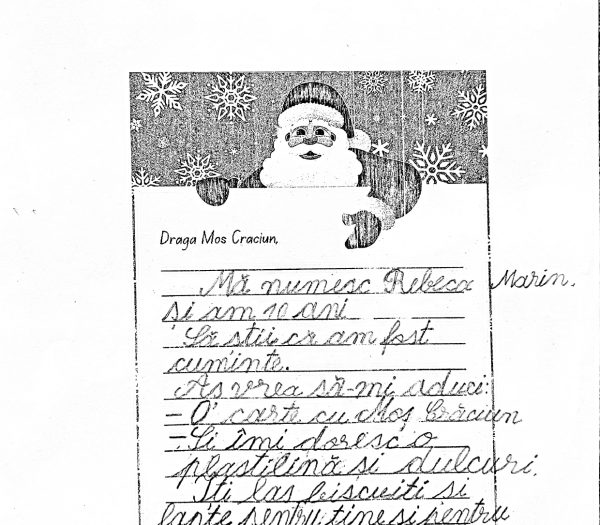 Draga Mos Craciun,
Mă numesc Rebeca Marin.
si am 10 ani
Să stii că am fost
cuminte.
As vrea să-mi aduci:
- O carte cu Moș Crăciun
- Si îmi doresc o
plastilină si dulciuri.
Iti las biscuiti si
lapte pentru tine si pentru